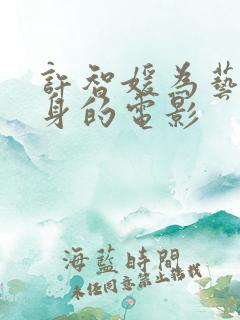 許智媛為藝
身的電影
海藍時間
未任同意禁止轉載